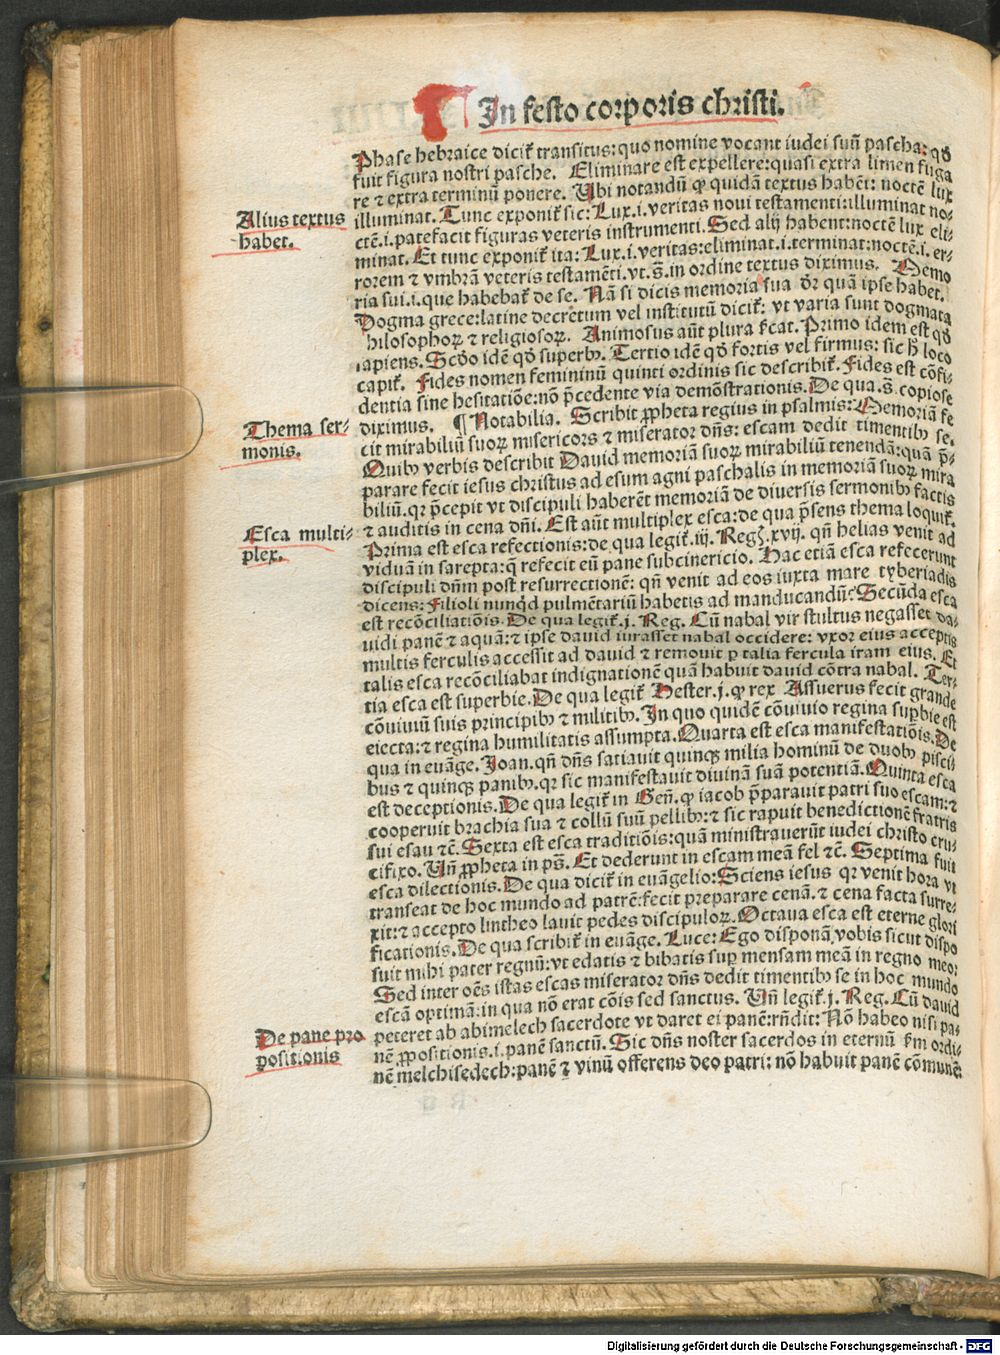 In festo corporis christi.
Phase hebraice dicit̃ transitus: quo nomine vocant iudei suũ pascha: qđ
fuit figura nostri pasche. Eliminare est expellere: quasi extra limen fuga
re ⁊ extra terminũ ponere. Ubi notandũ ꝙ quidã textus habẽt: noctẽ lux
Alius textus
habet.
illuminat. Tunc exponit̃ sic: Lux .i. veritas noui testamenti: illuminat no-
ctẽ .i. patefacit figuras veteris instrumenti. Sed alij habent: noctẽ lux eli-
minat. Et tunc exponit̃ ita: Lux .i. veritas: eliminat .i. terminat: noctẽ .i. er-
rorem ⁊ vmbrã veteris testamẽti. vt. s̃. in ordine textus diximus. Memo
ria sui .i. que habebat̃ de se. Nã si dicis memoria sua dr̃ quã ipse habet.
Dogma grece: latine decretum vel institutũ dicit̃: vt varia sunt dogmata
hilosophoꝝ ⁊ religiosoꝝ. Animosus aũt plura s̃cat. Primo idem est qđ
sapiens. Scđo idẽ qđ superbꝰ. Tertio idẽ qđ fortis vel firmus: sic h̃ loco
capit̃. Fides nomen femininũ quinti ordinis sic describit̃. Fides est cõfi-
dentia sine hesitatiõe: nõ p̃cedente via demõstrationis. De qua .s̃. copiose
Thema ser-
monis.
diximus. ¶ Notabilia. Scribit ꝓpheta regius in psalmis: Memoriã fe
cit mirabiliũ suoꝝ misericors ⁊ miserator dñs: escam dedit timentibꝰ se.
Quibꝰ verbis describit Dauid memoriã suoꝝ mirabiliũ tenendã: quã p̃-
parare fecit iesus christus ad esum agni paschalis in memoriã suoꝝ mira
biliũ. qꝛ p̃cepit vt discipuli haberẽt memoriã de diuersis sermonibꝰ factis
Esca multi-
plex.
⁊ auditis in cena dñi. Est aũt multiplex esca: de qua p̃sens thema loquit̃.
Prima est esca refectionis: de qua legit̃ .iij. Regꝝ. xvij. qñ helias venit ad
viduã in sarepta: q̃ refecit eũ pane subcinericio. Hac etiã esca refecerunt
discipuli dñm post resurrectionẽ: qñ venit ad eos iuxta mare tyberiadis
dicens: Filioli nunq̃d pulmẽtariũ habetis ad manducandũ: Secũda esca
est recõciliatiõis. De qua legit̃ .j. Reg. Cũ nabal vir stultus negasset da-
uidi panẽ ⁊ aquã: ⁊ ipse dauid iurasset nabal occidere: vxor eius acceptis
multis ferculis accessit ad dauid ⁊ remouit ꝑ talia fercula iram eius. Et
talis esca recõciliabat indignationẽ quã habuit dauid cõtra nabal. Ter-
tia esca est superbie. De qua legit̃ Hester .j. ꝙ rex Assuerus fecit grande
cõuiuiũ suis principibꝰ ⁊ militibꝰ. In quo quidẽ cõuiuio regina suꝑbie est
eiecta: ⁊ regina humilitatis assumpta. Quarta est esca manifestatiõis. De
qua in euãge. Joan. qñ dñs satiauit quinqꝫ milia hominũ de duobꝰ pisci-
bus ⁊ quinqꝫ panibꝰ. qꝛ sic manifestauit diuinã suã potentiã. Quinta esca
est deceptionis. De qua legit̃ in Geñ. ꝙ iacob p̃parauit patri suo escam: ⁊
cooperuit brachia sua ⁊ collũ suũ pellibꝰ: ⁊ sic rapuit benedictionẽ fratris
sui esau ⁊c̃. Sexta est esca traditiõis: quã ministrauerũt iudei christo cru-
cifixo. Uñ ꝓpheta in ps̃. Et dederunt in escam meã fel ⁊c̃. Septima fuit
esca dilectionis. De qua dicit̃ in euãgelio: Sciens iesus qꝛ venit hora vt
transeat de hoc mundo ad patrẽ: fecit preparare cenã. ⁊ cena facta surre-
xit: ⁊ accepto lintheo lauit pedes discipuloꝝ. Octaua esca est eterne glori
ficationis. De qua scribit̃ in euãge. Luce: Ego disponã vobis sicut dispo
suit mihi pater regnũ: vt edatis ⁊ bibatis suꝑ mensam meã in regno meo:
Sed inter oẽs istas escas miserator dñs dedit timentibꝰ se in hoc mundo
escã optimã: in qua nõ erat cõis sed sanctus. Uñ legit̃ .j. Reg. Cũ dauid
De pane pro
positionis
peteret ab abimelech sacerdote vt daret ei panẽ: rñdit: Nõ habeo nisi pa-
nẽ ꝓpositionis .i. panẽ sanctũ. Sic dñs noster sacerdos in eternũ s̃m ordi-
nẽ melchisedech: panẽ ⁊ vinũ offerens deo patri: nõ habuit panẽ cõmunẽ:
Digitalisierung gefördert durch die Deutsche Forschungsgemeinschaft - DFG